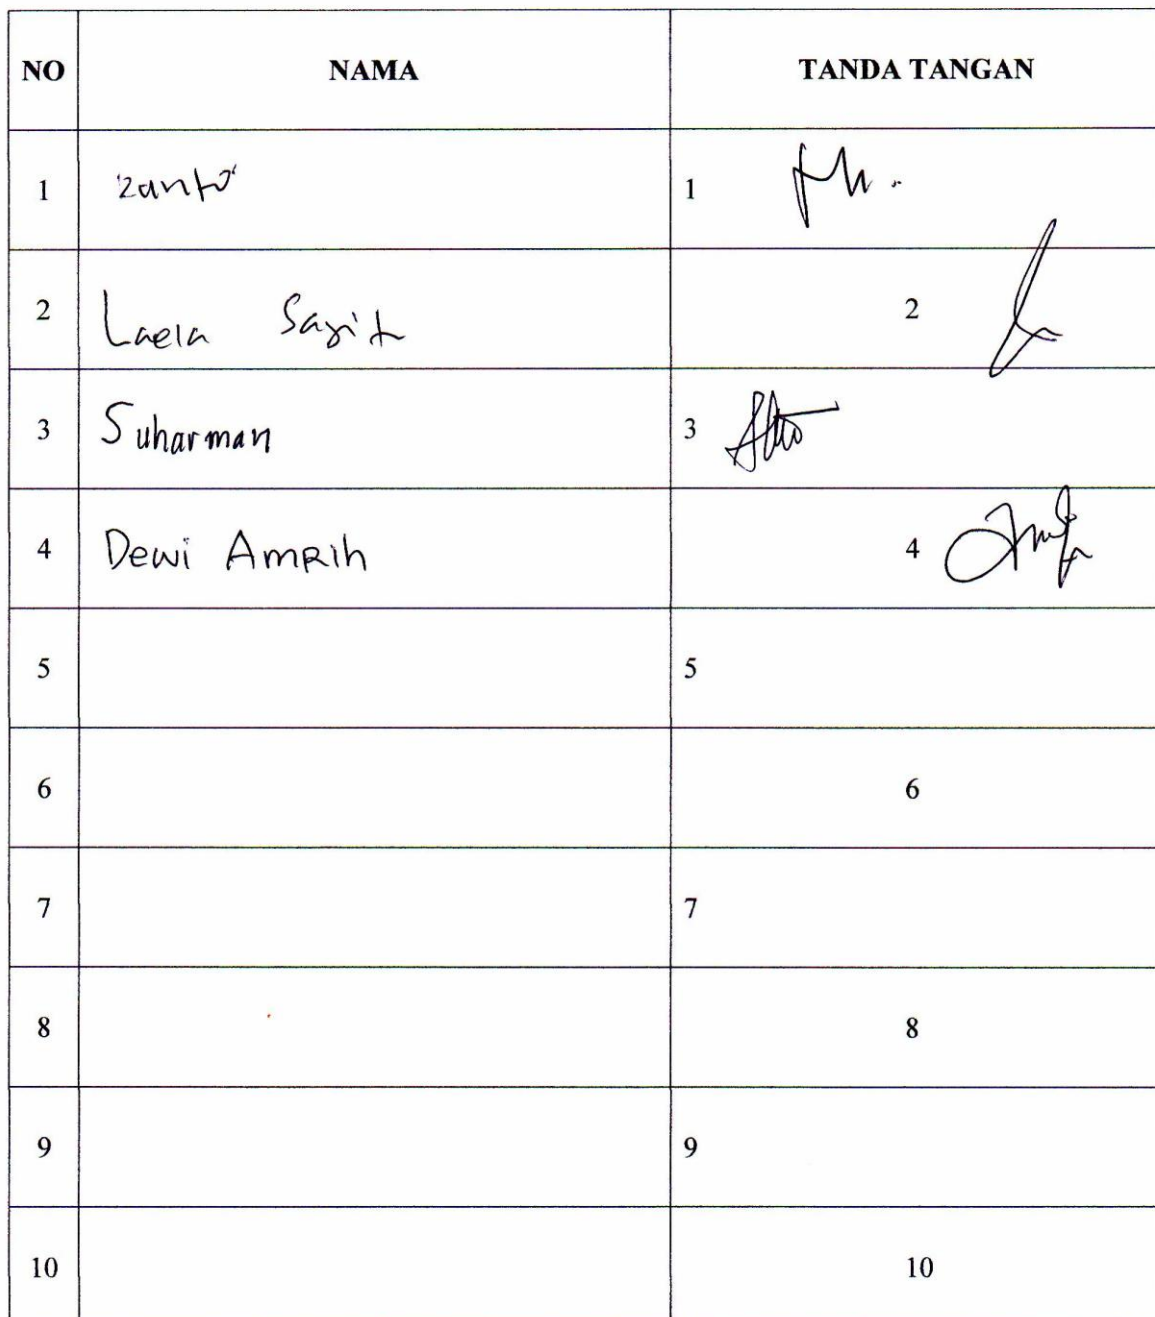 NO NAMA TANDA TANGAN
1 zanto 1
2 Laela 2
3 Suharman 3
4 Dewi Amrih 4
5 5
6 6
7 7
8 8
9 9
10 10